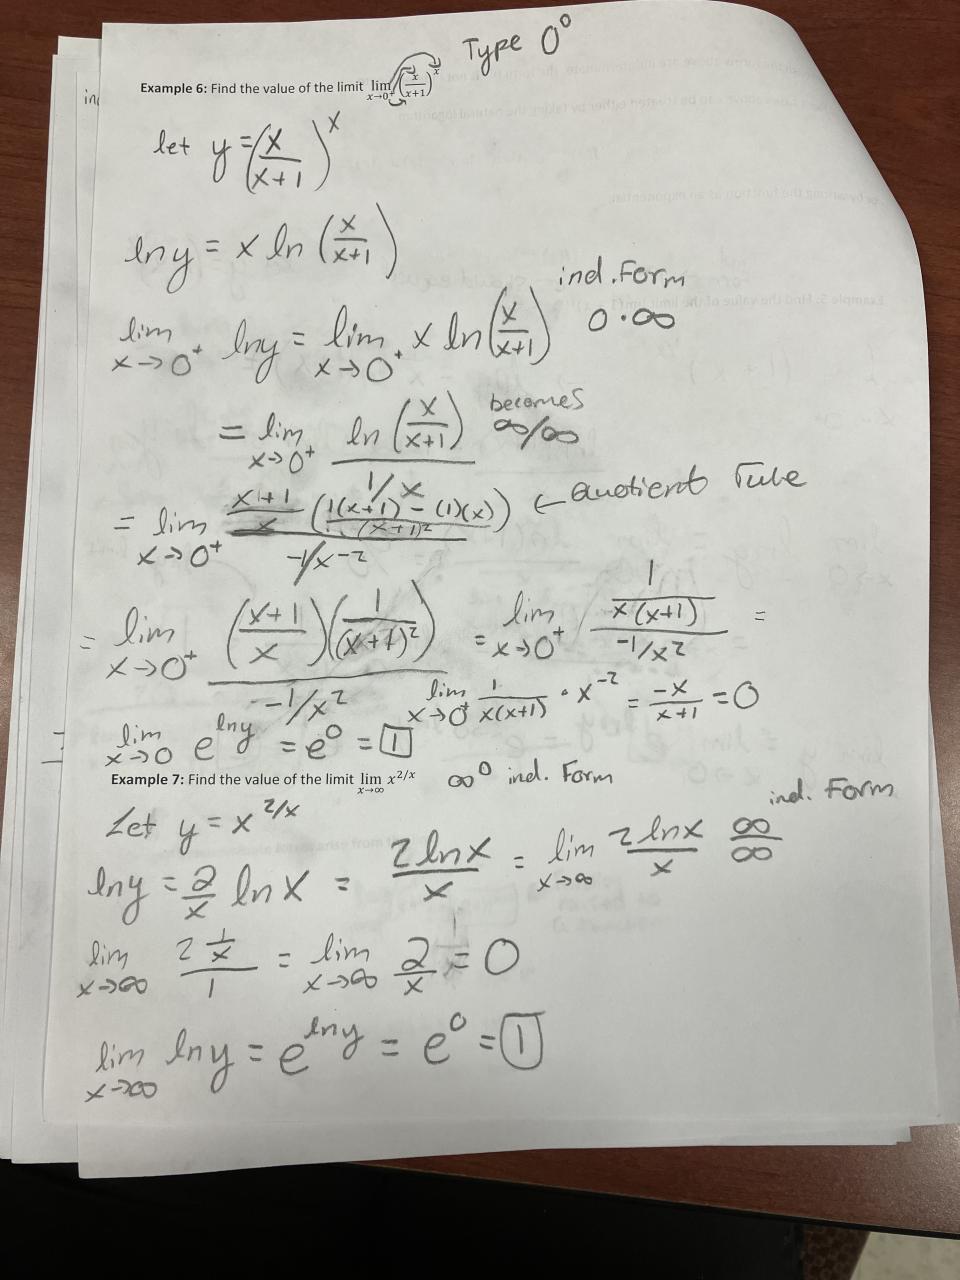 Type 0⁰
Example 6: Find the value of the limit lim x→0⁺ (x/(x+1))^x
let y = (x/(x+1))^x
ln y = x ln (x/(x+1))
ind. Form
lim x→0⁺ ln y = lim x→0⁺ x ln (x/(x+1)) 0·∞
= lim x→0⁺ ln (x/(x+1)) / (1/x) becomes ∞/∞
= lim x→0⁺ ((x+1)/x) ((1(x+1) - (1)(x))/(x+1)²) / (-1/x⁻²) ← quotient rule
= lim x→0⁺ ((x+1)/x)(1/(x+1)²) / (-1/x²) = lim x→0⁺ (1/(x(x+1))) / (-1/x²) =
lim x→0⁺ 1/(x(x+1)) · x⁻² = -x/(x+1) = 0
= lim x→0 e^(ln y) = e⁰ = 1
Example 7: Find the value of the limit lim x→∞ x^(2/x) ∞⁰ ind. Form
Let y = x^(2/x) ind. Form
ln y = 2/x ln x = 2 ln x / x = lim x→∞ 2 ln x / x ∞/∞
lim x→∞ 2 (1/x) / 1 = lim x→∞ 2/x = 0
lim x→∞ ln y = e^(ln y) = e⁰ = 1